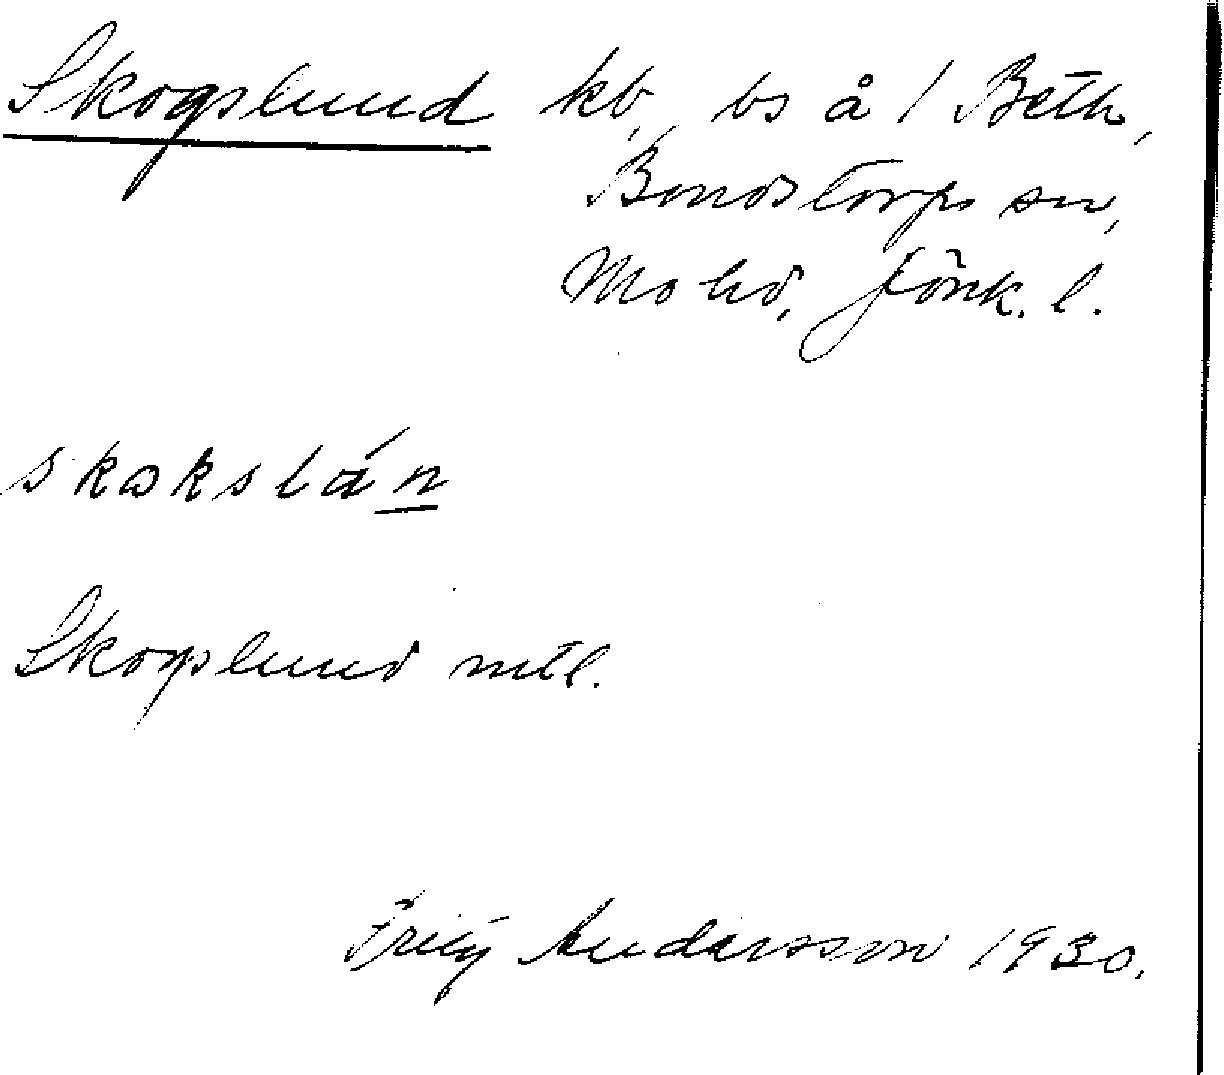 Skogslund kb, bs å 1 Beth,
Bondstorps sn,
Mo hd, Jönk. l.
skokslán
Skogslund mtl.
Fritz Andersson 1930.